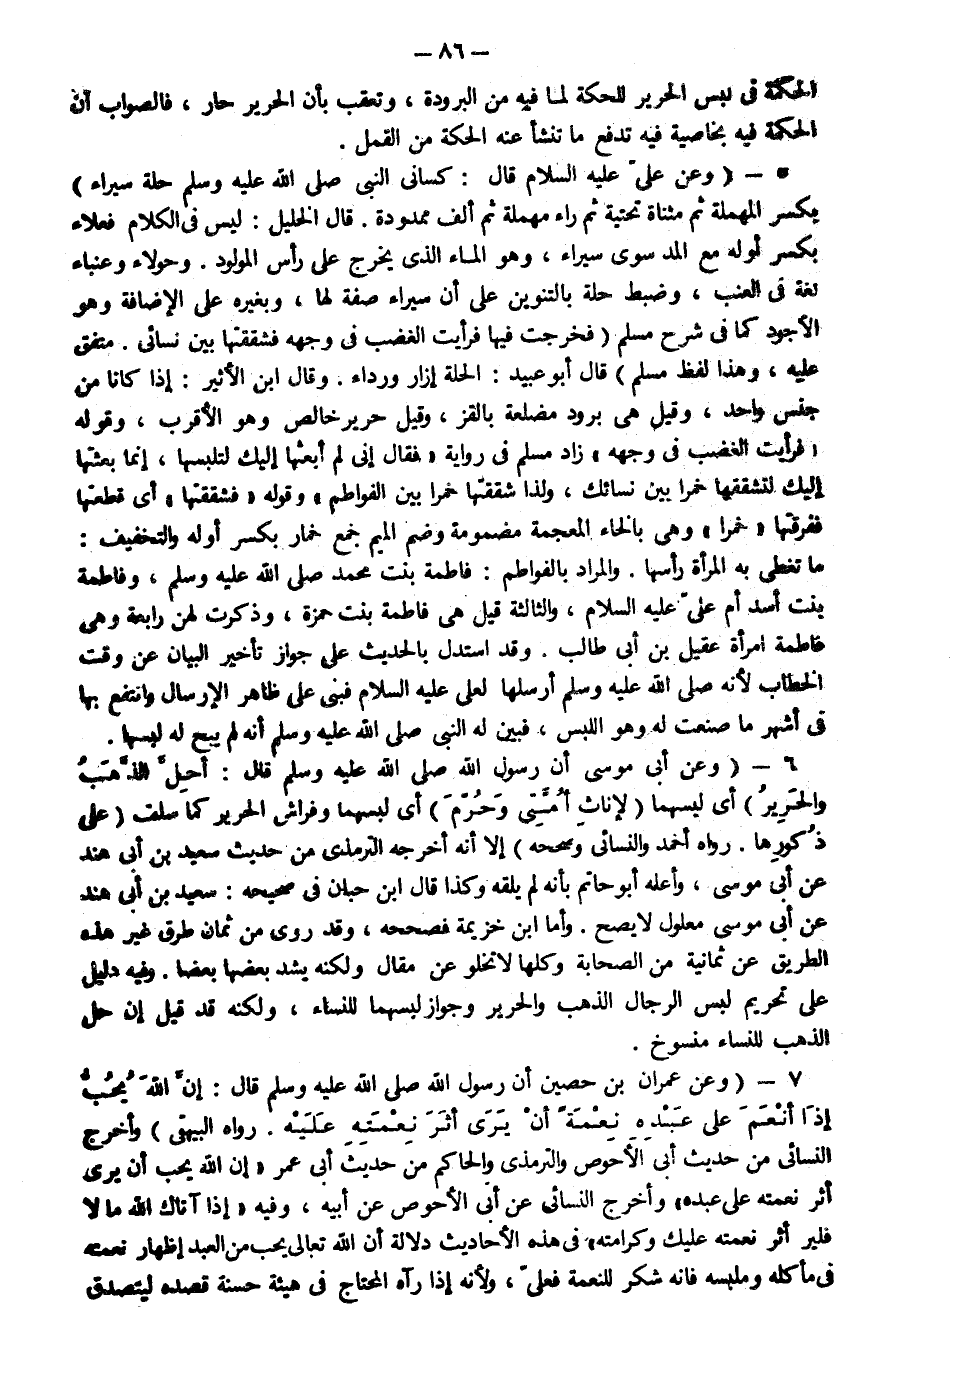 — ٨٦ —
الحكمة فى لبس الحرير للحكة لما فيه من البرودة ، وتعقب بأن الحرير حار ، فالصواب أن
الحكمة فيه بخاصية فيه تدفع ما تنشأ عنه الحكة من القمل .
٥ — ( وعن علىّ عليه السلام قال : كسانى النبى صلى الله عليه وسلم حلة سيراء )
بكسر المهملة ثم مثناة تحتية ثم راء مهملة ثم ألف ممدودة . قال الخليل : ليس فى الكلام فعلاء
بكسر أوله مع المد سوى سيراء ، وهو الماء الذى يخرج على رأس المولود . وحولاء وعنباء
لغة فى العنب ، وضبط حلة بالتنوين على أن سيراء صفة لها ، وبغيره على الإضافة وهو
الأجود كما فى شرح مسلم ( فخرجت فيها فرأيت الغضب فى وجهه فشققتها بين نسائى . متفق
عليه ، وهذا لفظ مسلم ) قال أبو عبيد : الحلة إزار ورداء . وقال ابن الأثير : إذا كانا من
جنس واحد ، وقيل هى برود مضلعة بالقز ، وقيل حرير خالص وهو الأقرب ، وقوله
« فرأيت الغضب فى وجهه » زاد مسلم فى رواية « فقال إنى لم أبعثها إليك لتلبسها ، إنما بعثتها
إليك لتشققها خمرا بين نسائك ، ولذا شققتها خمرا بين الفواطم » وقوله « فشققتها » أى قطعتها
ففرقتها « خمرا » وهى بالخاء المعجمة مضمومة وضم الميم جمع خمار بكسر أوله والتخفيف :
ما تغطى به المرأة رأسها . والمراد بالفواطم : فاطمة بنت محمد صلى الله عليه وسلم ، وفاطمة
بنت أسد أم علىّ عليه السلام ، والثالثة قيل هى فاطمة بنت حمزة ، وذكرت لهن رابعة وهى
فاطمة امرأة عقيل بن أبى طالب . وقد استدل بالحديث على جواز تأخير البيان عن وقت
الخطاب لأنه صلى الله عليه وسلم أرسلها لعلى عليه السلام فبنى على ظاهر الإرسال وانتفع بها
فى أشهر ما صنعت له وهو اللبس ، فبين له النبى صلى الله عليه وسلم أنه لم يبح له لبسها .
٦ — ( وعن أبى موسى أن رسول الله صلى الله عليه وسلم قال : أُحِلَّ الذَّهَبُ
والحَرِيرُ ) أى لبسهما ( لإناثِ أُمَّتِى وَحُرِّمَ ) أى لبسهما وفراش الحرير كما سلف ( على
ذُكُورِها . رواه أحمد والنسائى وصححه ) إلا أنه أخرجه الترمذى من حديث سعيد بن أبى هند
عن أبى موسى ، وأعله أبو حاتم بأنه لم يلقه وكذا قال ابن حبان فى صحيحه : سعيد بن أبى هند
عن أبى موسى معلول لا يصح . وأما ابن خزيمة فصححه ، وقد روى من ثمان طرق غير هذه
الطريق عن ثمانية من الصحابة وكلها لا تخلو عن مقال ولكنه يشد بعضها بعضا . وفيه دليل
على تحريم لبس الرجال الذهب والحرير وجواز لبسهما للنساء ، ولكنه قد قيل إن حل
الذهب للنساء منسوخ .
٧ — ( وعن عمران بن حصين أن رسول الله صلى الله عليه وسلم قال : إنَّ اللهَ يُحِبُّ
إذَا أَنْعَمَ على عَبْدِهِ نِعْمَةً أنْ يَرَى أثَرَ نِعْمَتِهِ عَلَيْهِ . رواه البيهقى ) وأخرج
النسائى من حديث أبى الأحوص والترمذى والحاكم من حديث أبى عمر « إن الله يحب أن يرى
أثر نعمته على عبده» وأخرج النسائى عن أبى الأحوص عن أبيه ، وفيه « إذا آتاك الله مالا
فلير أثر نعمته عليك وكرامته» فى هذه الأحاديث دلالة أن الله تعالى يحب من العبد إظهار نعمته
فى مأكله وملبسه فانه شكر للنعمة فعلىّ ، ولأنه إذا رآه المحتاج فى هيئة حسنة قصده ليتصدق